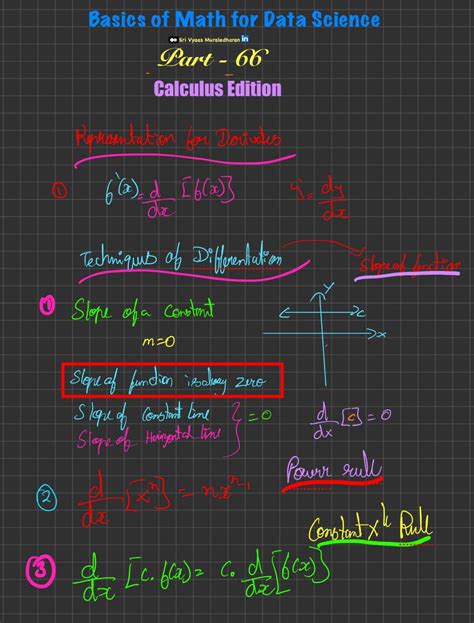 Basics of Math for Data Science
Sri Vyaas Muraledharan in
Part - 66
Calculus Edition
Representation for Derivates
① f'(x) = d/dx [f(x)] y' = dy/dx
Techniques of Differentiation
Slope of function
① Slope of a Constant
m=0
y
c
x
Slope of function is always zero
Slope of Constant line
Slope of Horizontal line } = 0
d/dx [c] = 0
Power rule
② d/dx [x^n] = nx^n-1
Constant x^k Rule
③ d/dx [c. f(x) = c. d/dx [f(x)]